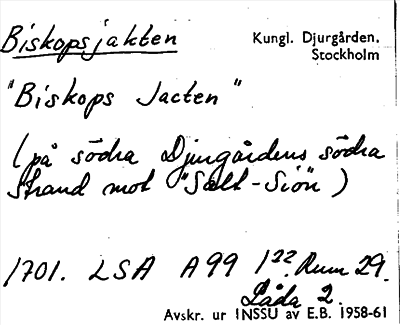 Biskopsjakten
Kungl. Djurgården.
Stockholm
"Biskops Jacten"
(på södra Djurgårdens södra
strand mot "Salt-Siön")
1701. LSA A99 1²². Rum 29.
Låda 2.
Avskr. ur INSSU av E.B. 1958-61